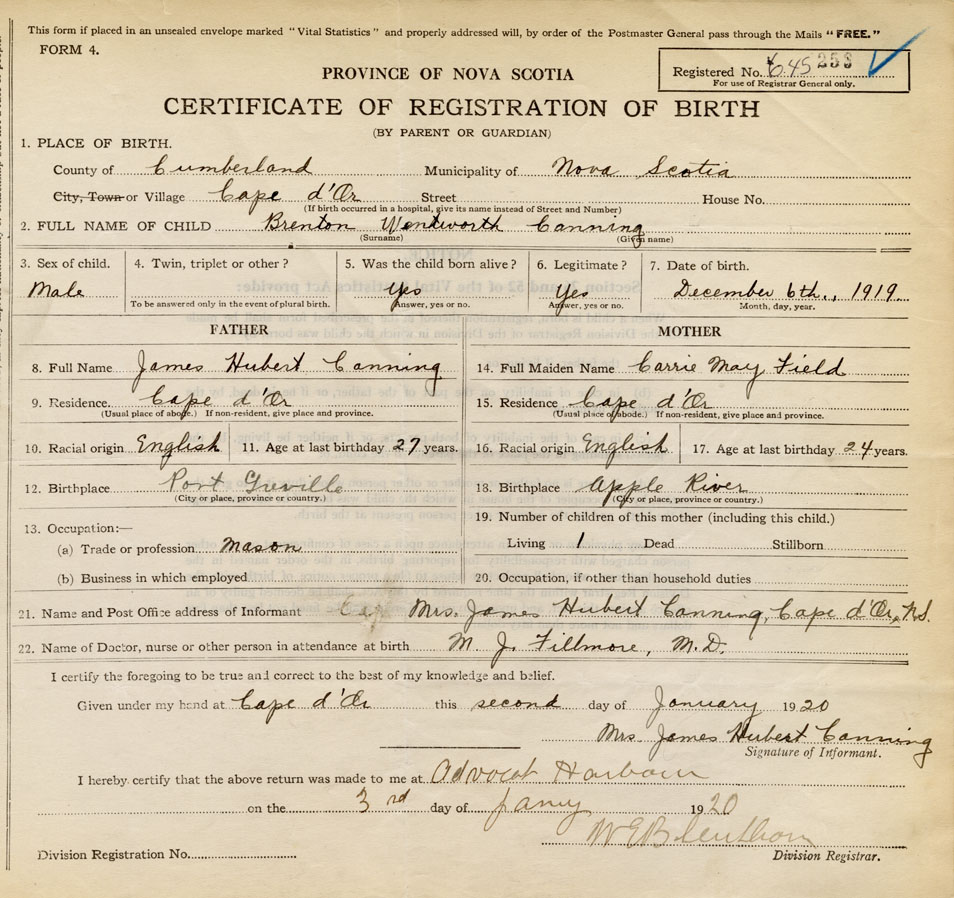 This form if placed in an unsealed envelope marked "Vital Statistics" and properly addressed will, by order of the Postmaster General pass through the Mails "FREE."
FORM 4.
Registered No. 645 259
For use of Registrar General only.
PROVINCE OF NOVA SCOTIA
CERTIFICATE OF REGISTRATION OF BIRTH
(BY PARENT OR GUARDIAN)
1. PLACE OF BIRTH.
County of Cumberland Municipality of Nova Scotia
City, Town or Village Cape d'Or Street House No.
(If birth occurred in a hospital, give its name instead of Street and Number)
2. FULL NAME OF CHILD Brenton Wentworth Canning
(Surname) (Given name)
3. Sex of child. 4. Twin, triplet or other? 5. Was the child born alive? 6. Legitimate? 7. Date of birth.
Male Yes Yes December 6th., 1919
To be answered only in the event of plural birth. Answer, yes or no. Answer, yes or no. Month, day, year.
FATHER MOTHER
8. Full Name James Hubert Canning 14. Full Maiden Name Carrie May Field
9. Residence. Cape d'Or 15. Residence Cape d'Or
(Usual place of abode.) If non-resident, give place and province. (Usual place of abode.) If non-resident, give place and province.
10. Racial origin English 11. Age at last birthday 27 years. 16. Racial origin English 17. Age at last birthday 24 years.
12. Birthplace Port Greville 18. Birthplace Apple River
(City or place, province or country.) (City or place, province or country.)
13. Occupation:— 19. Number of children of this mother (including this child.)
(a) Trade or profession Mason Living 1 Dead Stillborn
(b) Business in which employed 20. Occupation, if other than household duties
21. Name and Post Office address of Informant Mrs. James Hubert Canning, Cape d'Or, N.S.
22. Name of Doctor, nurse or other person in attendance at birth M. J. Fillmore, M.D.
I certify the foregoing to be true and correct to the best of my knowledge and belief.
Given under my hand at Cape d'Or this second day of January 1920
Mrs. James Hubert Canning
Signature of Informant.
I hereby certify that the above return was made to me at Advocat Harbour
on the 3rd day of 1920
Division Registration No. Division Registrar.